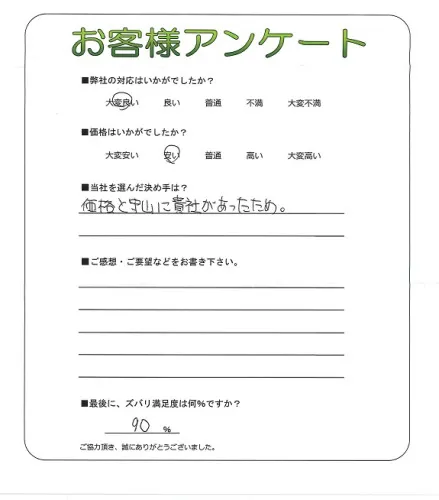 お客様アンケート
■弊社の対応はいかがでしたか？
大変良い 良い 普通 不満 大変不満
■価格はいかがでしたか？
大変安い 安い 普通 高い 大変高い
■当社を選んだ決め手は？
価格と守山に貴社があったため。
■ご感想・ご要望などをお書き下さい。
■最後に、ズバリ満足度は何%ですか？
90 %
ご協力頂き、誠にありがとうございました。